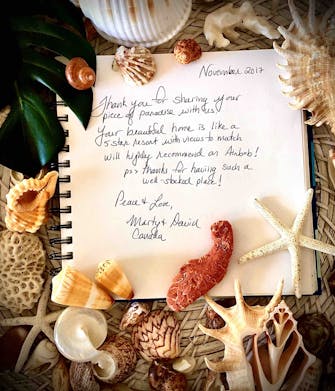 November 2017
Thank you for sharing your
piece of paradise with us!
Your beautiful home is like a
5 star resort with views to match
will highly recommend on Airbnb!
ps> thanks for having such a
well-stocked place!
Peace & Love,
Marty & David
Canada